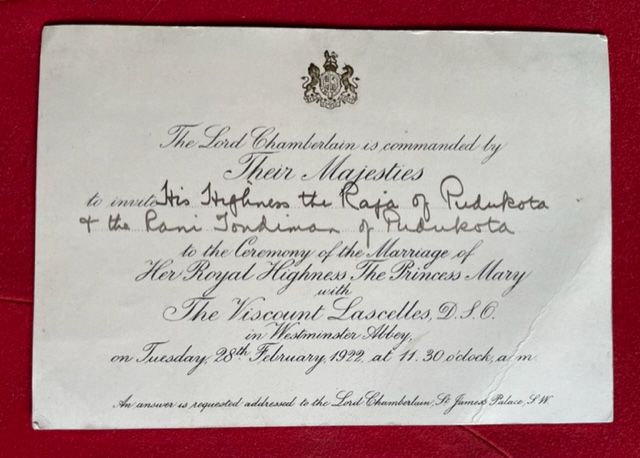 The Lord Chamberlain is commanded by
Their Majesties
to invite His Highness the Raja of Pudukota
& the Rani Tondiman of Pudukota
to the Ceremony of the Marriage of
Her Royal Highness The Princess Mary
with
The Viscount Lascelles, D.S.O.
in Westminster Abbey,
on Tuesday, 28th February, 1922, at 11.30 o'clock, a.m.
An answer is requested addressed to the Lord Chamberlain, St James's Palace, S.W.